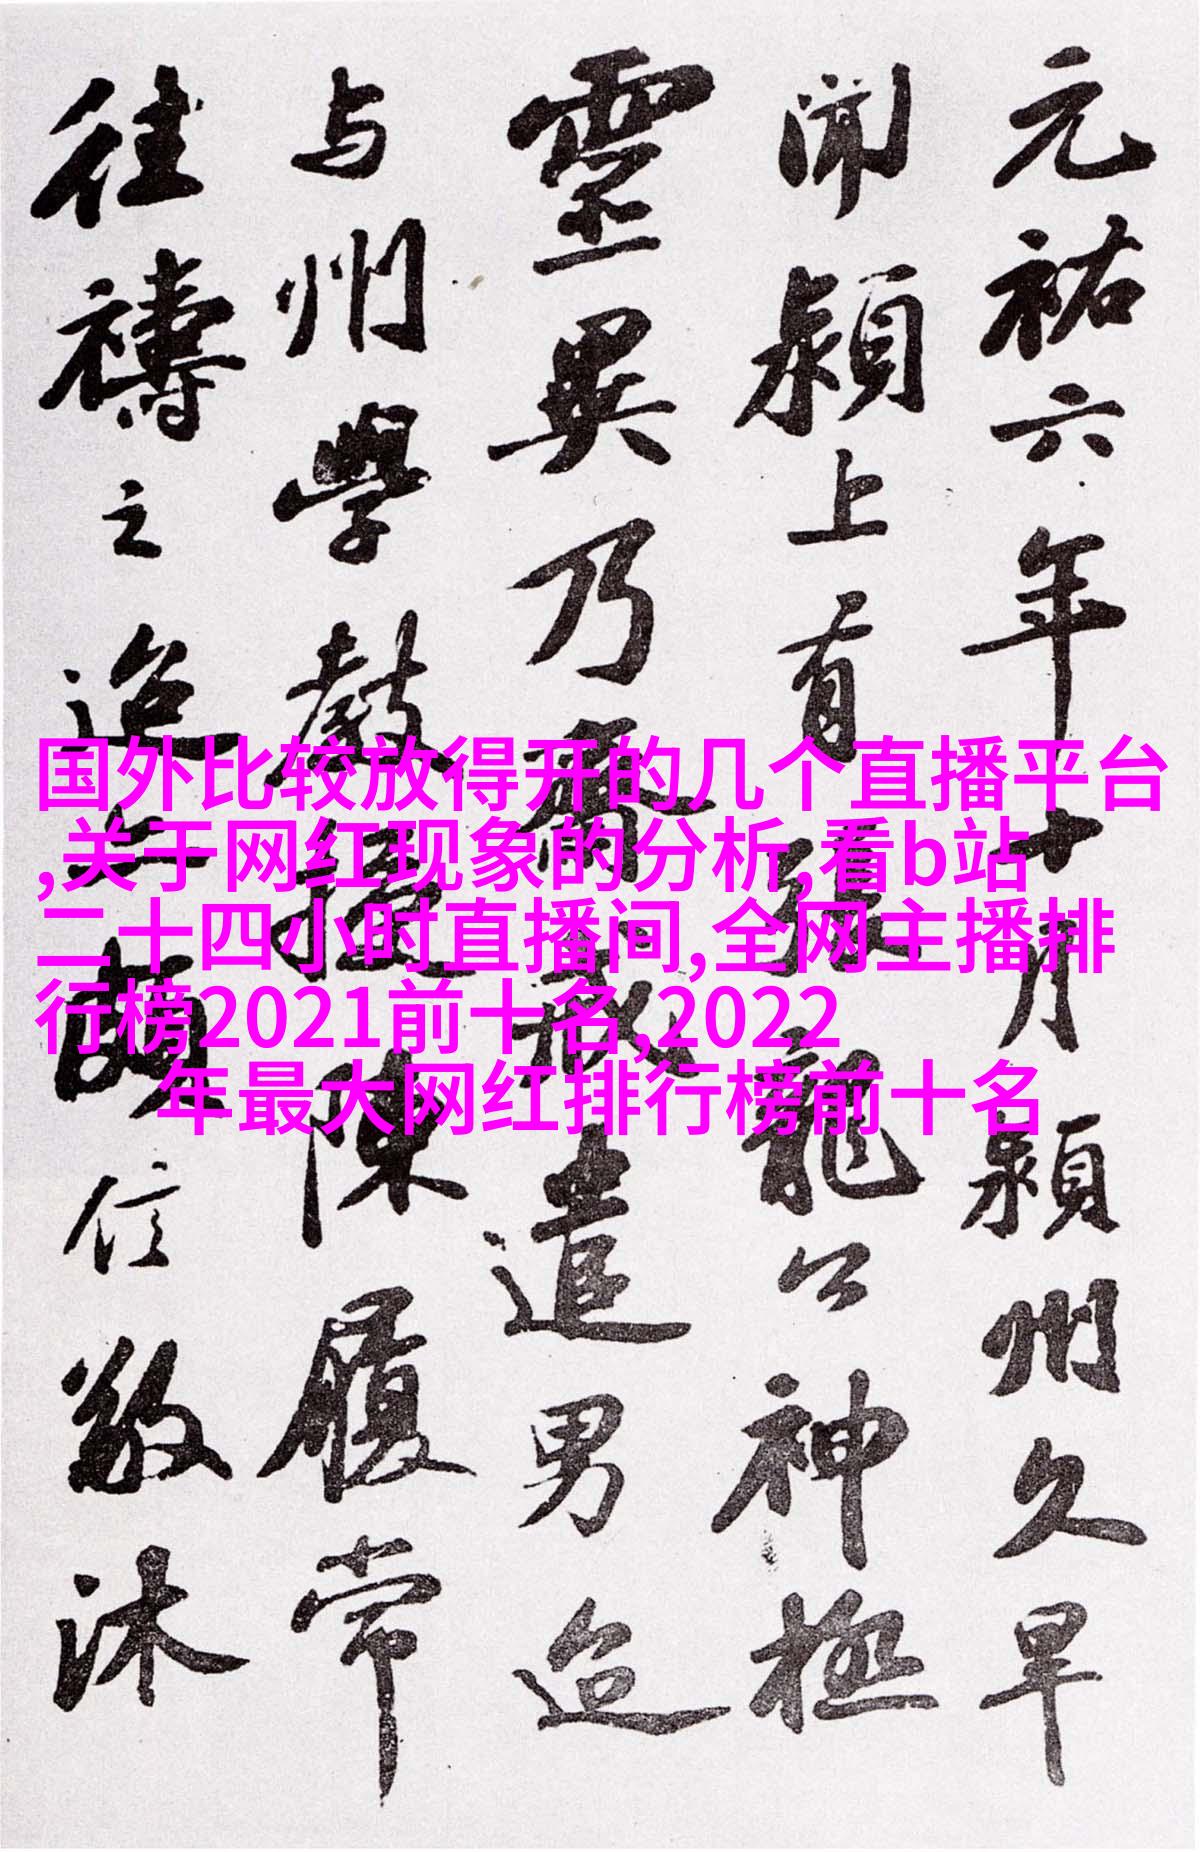 元祐六年十月潁州久旱
聞潁上有張龍公神極
靈異乃齋戒遣男迨
与州學教授陳履常
往禱之迨亦頗信敬沐
国外比较放得开的几个直播平台
,关于网红现象的分析,看b站
二十四小时直播间,全网主播排
行榜2021前十名,2022
年最大网红排行榜前十名